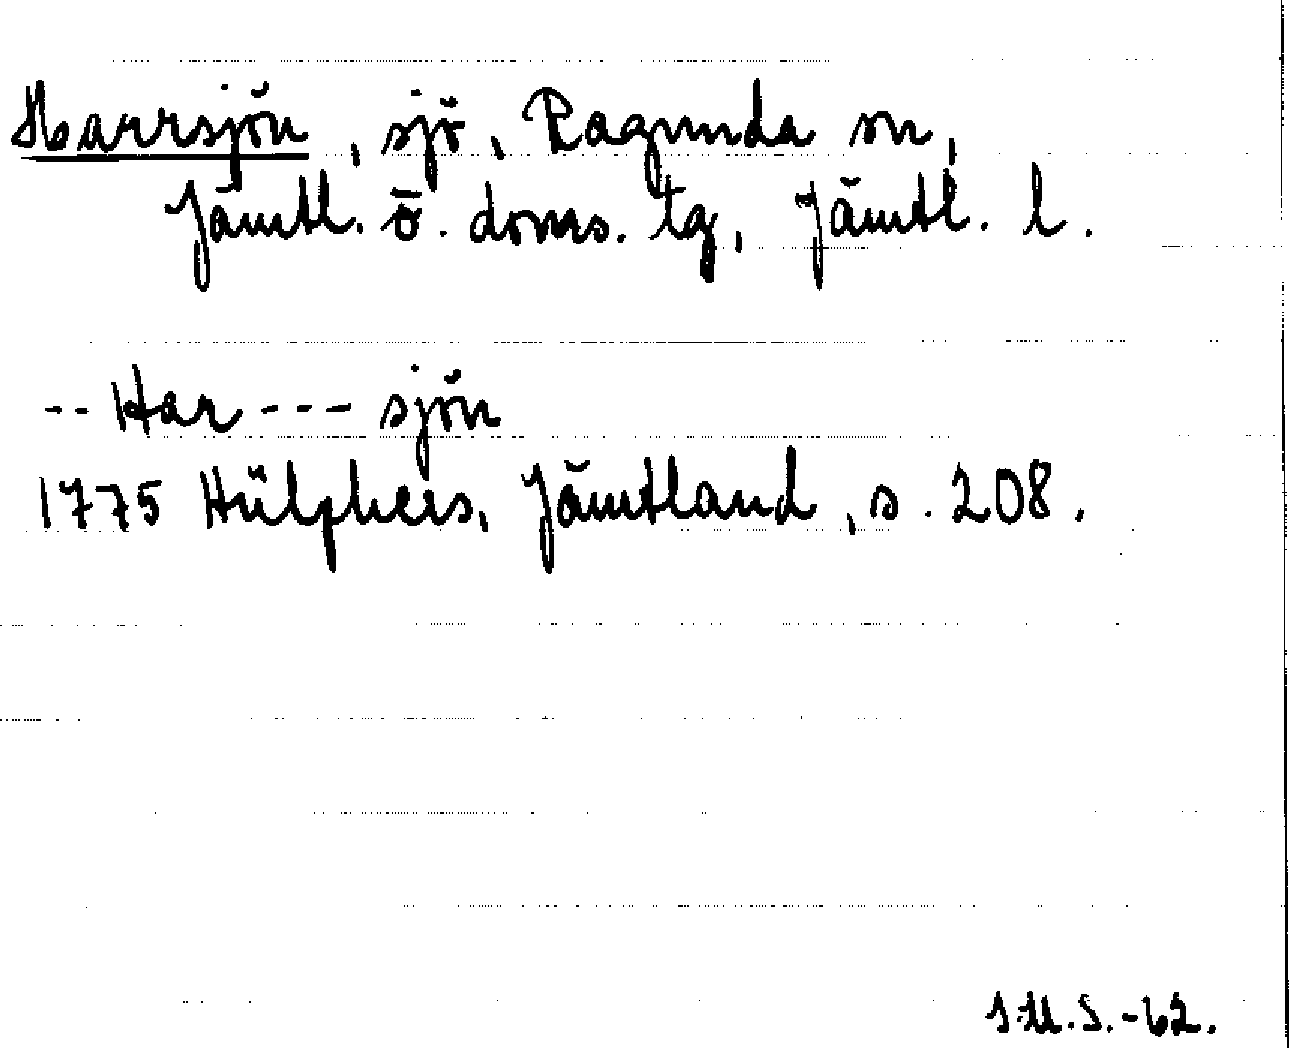 Harrsjön, sjö, Ragunda sn,
Jämtl. ö. doms. tg, Jämtl. l.
-- Har --- sjön
1775 Hülphers, Jämtland, s. 208.
I.U.S.-62.